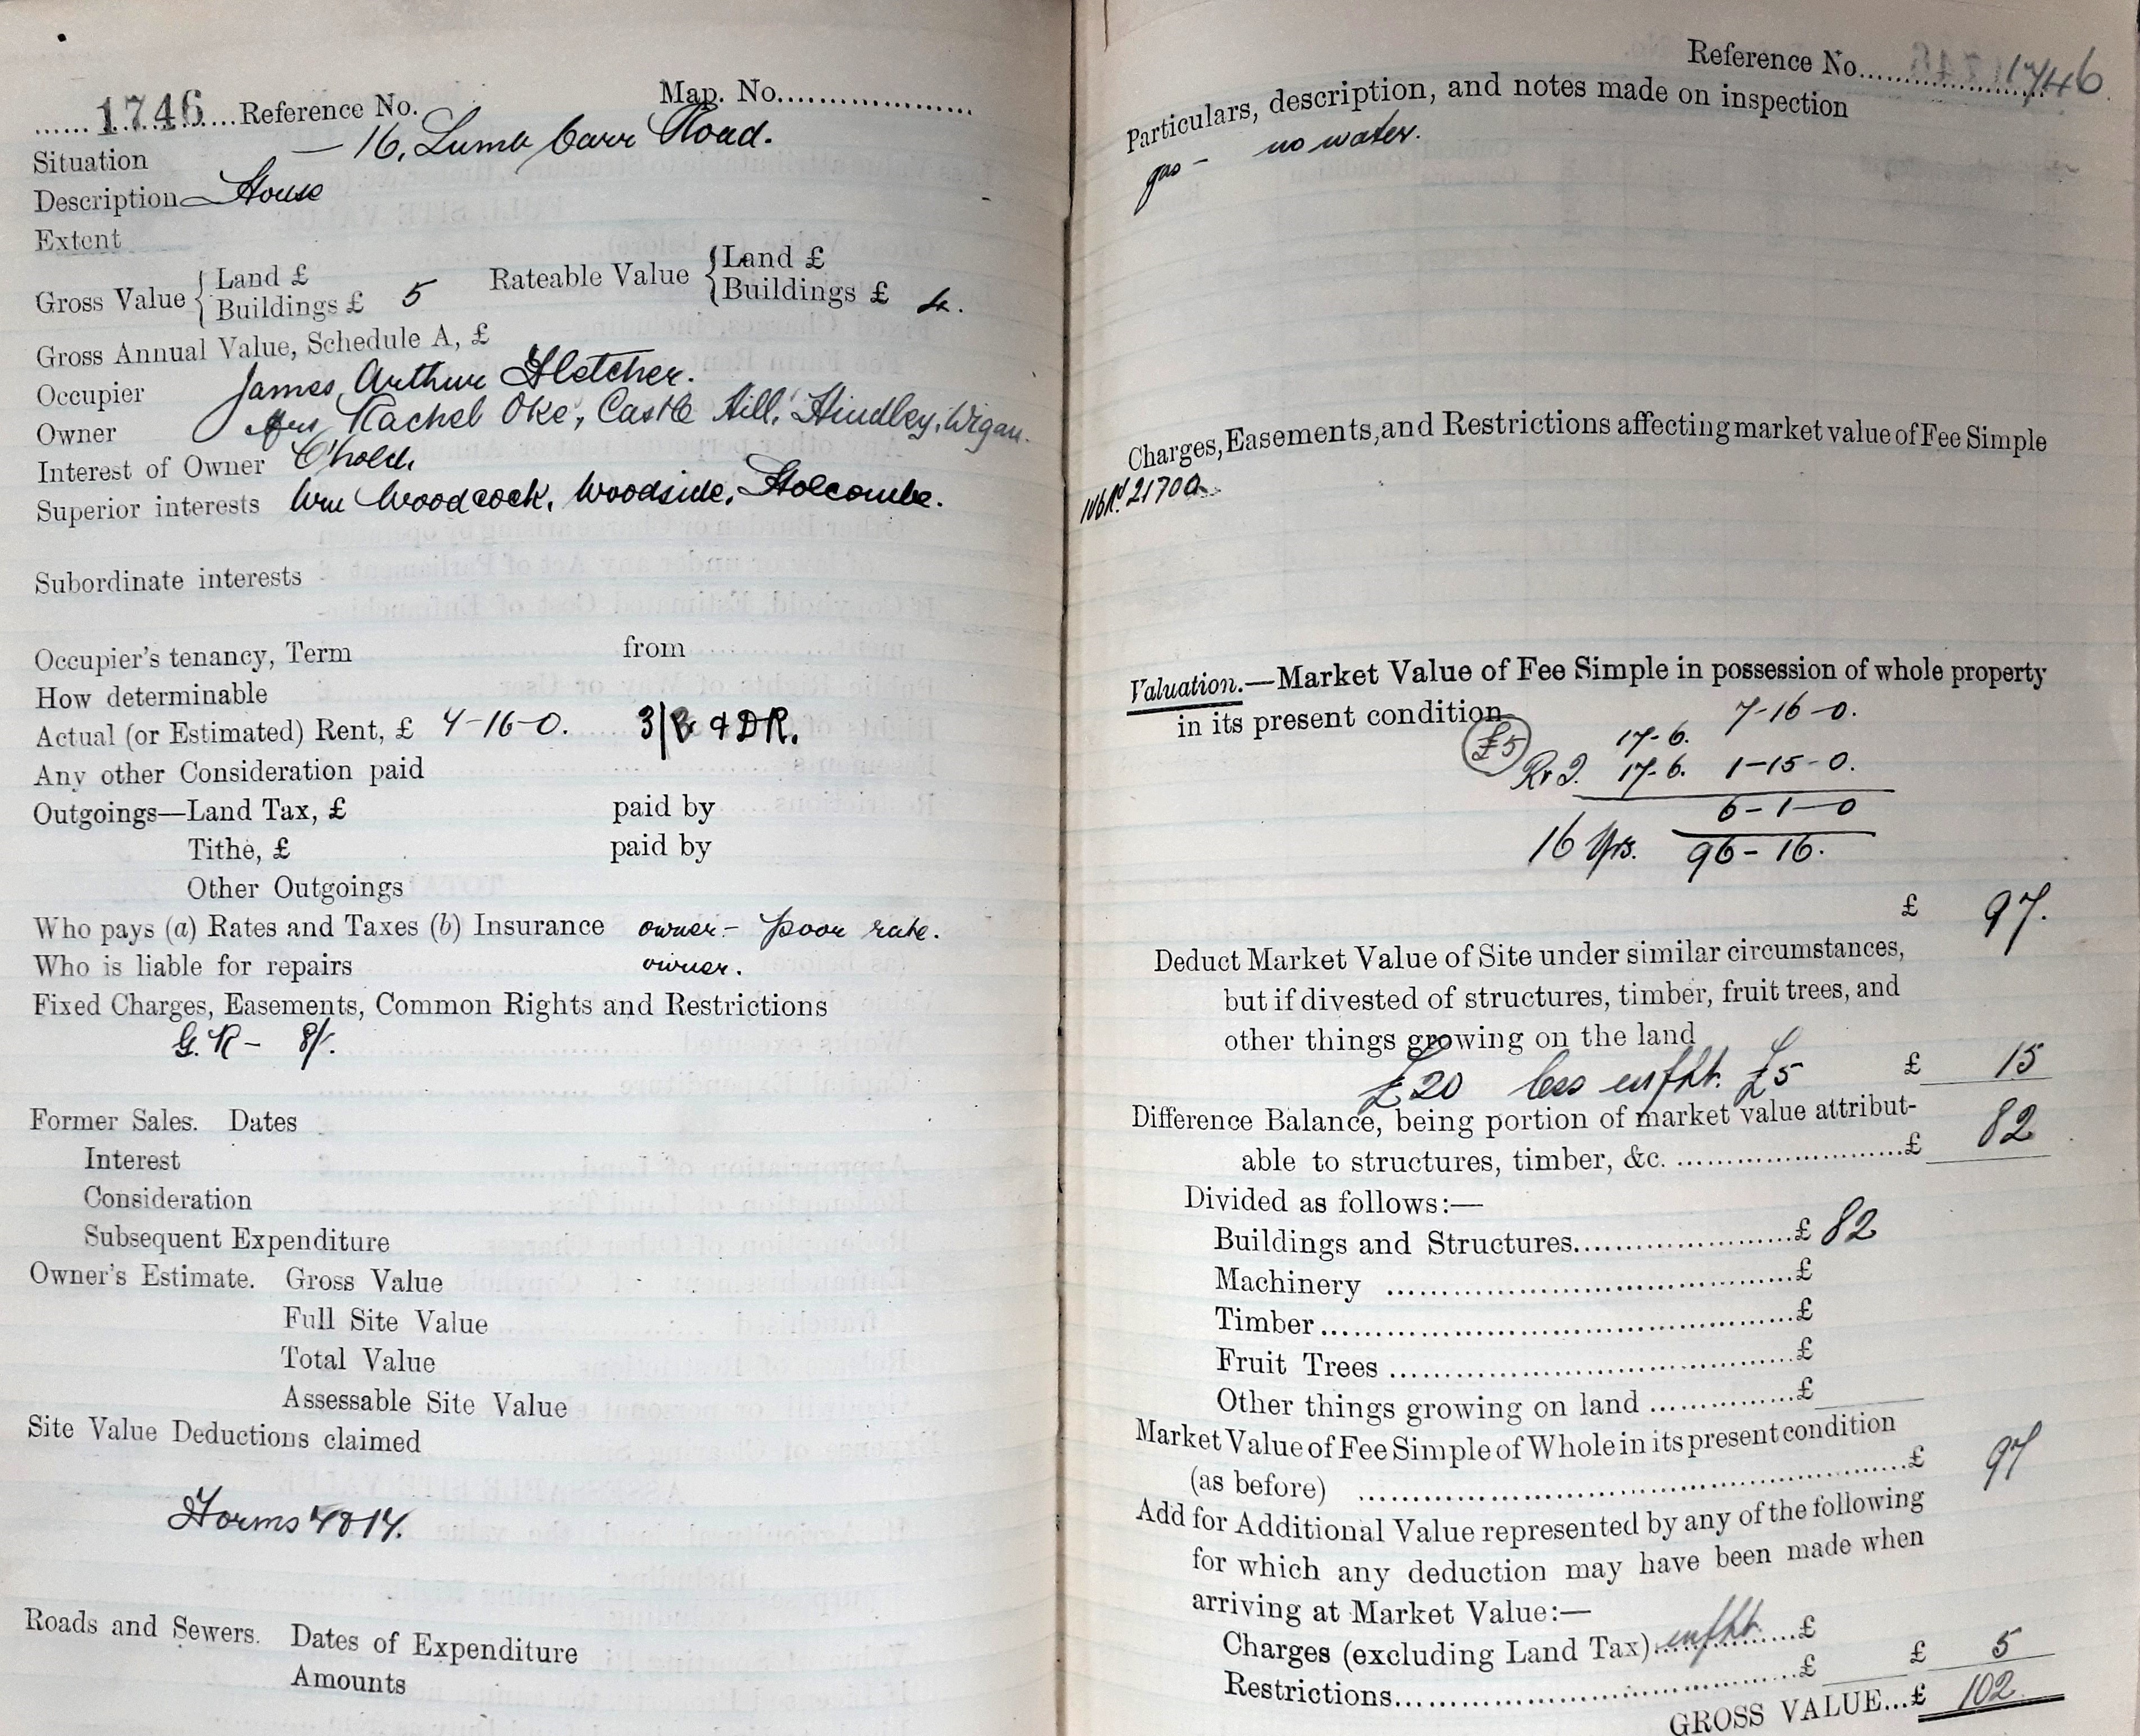 ......1746....Reference No. Map. No..................
Situation — 16, Lumb Carr Road.
Description — House
Extent
Gross Value { Land £
Buildings £ 5
Rateable Value { Land £
Buildings £ 4.
Gross Annual Value, Schedule A, £
Occupier James Arthur Fletcher.
Owner Mrs Rachel Oke, Castle Hill, Hindley, Wigan.
Interest of Owner C'hold.
Superior interests Wm Woodcock, Woodside, Holcombe.
Subordinate interests
Occupier's tenancy, Term from
How determinable
Actual (or Estimated) Rent, £ 4-16-0. 3/ & DR.
Any other Consideration paid
Outgoings—Land Tax, £ paid by
Tithe, £ paid by
Other Outgoings
Who pays (a) Rates and Taxes (b) Insurance owner - poor rate.
Who is liable for repairs owner.
Fixed Charges, Easements, Common Rights and Restrictions
G.R - 8/.
Former Sales. Dates
Interest
Consideration
Subsequent Expenditure
Owner's Estimate. Gross Value
Full Site Value
Total Value
Assessable Site Value
Site Value Deductions claimed
Forms 4 & 14.
Roads and Sewers. Dates of Expenditure
Amounts
Reference No..................1746
Particulars, description, and notes made on inspection
gas - no water.
Charges, Easements, and Restrictions affecting market value of Fee Simple
2170a
Valuation.—Market Value of Fee Simple in possession of whole property
in its present condition
7-16-0.
£5 17-6.
R & I. 17-6. 1-15-0.
6-1-0
16 Yrs. 96-16.
£ 97.
Deduct Market Value of Site under similar circumstances,
but if divested of structures, timber, fruit trees, and
other things growing on the land
£20 less enfht. £5 £ 15
Difference Balance, being portion of market value attribut-
able to structures, timber, &c. ........................£ 82
Divided as follows:—
Buildings and Structures........................£ 82
Machinery ........................£
Timber........................£
Fruit Trees ........................£
Other things growing on land ...............£
Market Value of Fee Simple of Whole in its present condition
(as before) ........................£ 97
Add for Additional Value represented by any of the following
for which any deduction may have been made when
arriving at Market Value:—
Charges (excluding Land Tax) enfht. £
Restrictions........................£ £ 5
GROSS VALUE...£ 102